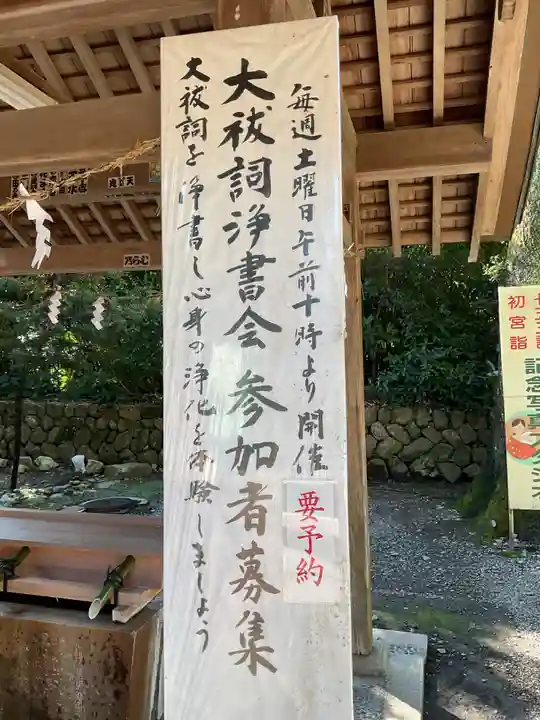 毎週土曜日午前十時より開催
要予約
大祓詞浄書会参加者募集
大祓詞を浄書し心身の浄化を体験しましょう
初宮詣